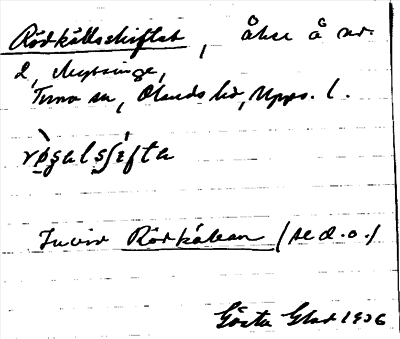 Rödkällsskiftet, åker å nr
2, Myssinge,
Tuna sn, Olands hd, Upps. l.
Invid Rödkällan (se d. o.)
Gösta Glad 1936